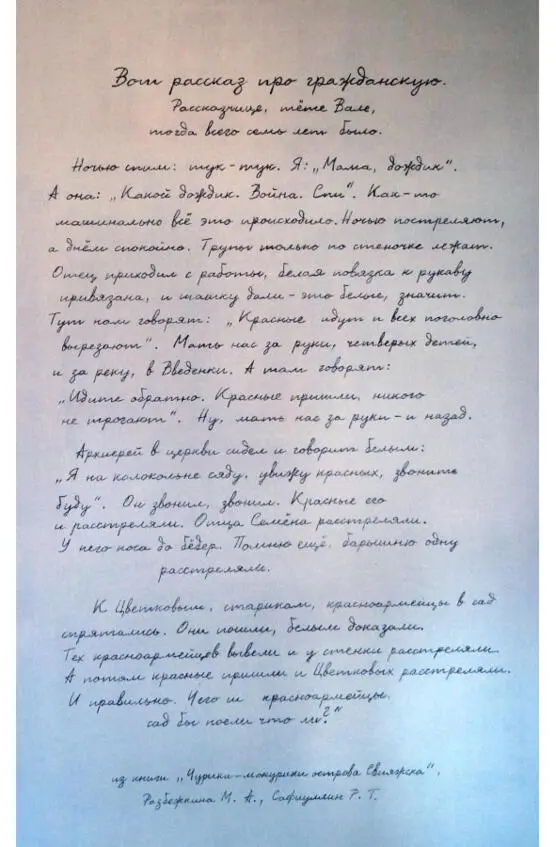 Вот рассказ про гражданскую.
Рассказчице, тёте Вале,
тогда всего семь лет было.
Ночью спим: тук-тук. Я: „Мама, дождик“.
А она: „Какой дождик. Война. Спи“. Как-то
машинально всё это происходило. Ночью постреляют,
а днём спокойно. Трупы только по стеночке лежат.
Отец приходил с работы, белая повязка к рукаву
привязана, и шашку дали - это белые, значит.
Тут нам говорят: „Красные идут и всех поголовно
вырезают“. Мать нас за руки, четверых детей,
и за реку, в Введенки. А там говорят:
„Идите обратно. Красные пришли, никого
не трогают“. Ну, мать нас за руки - и назад.
Архиерей в церкви сидел и говорит белым:
„Я на колокольне сяду, увижу красных, звонить
буду“. Он звонил, звонил. Красные его
и расстреляли. Отца Семёна расстреляли.
У него коса до бёдер. Помню ещё, барышню одну
расстреляли.
К Цветковым, старикам, красноармейцы в сад
спрятались. Они пошли, белым доказали.
Тех красноармейцев вывели и у стенки расстреляли.
А потом красные пришли и Цветковых расстреляли.
И правильно. Чего ж красноармейцы,
сад бы поели что ли?“
из книги „Чурики-мокурики острова Свияжска“.
Разбежкина М. А., Сафиуллин Р. Т.